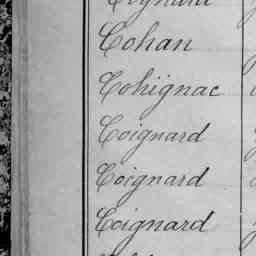 Cohan
Cohignac
Coignard
Coignard
Coignard